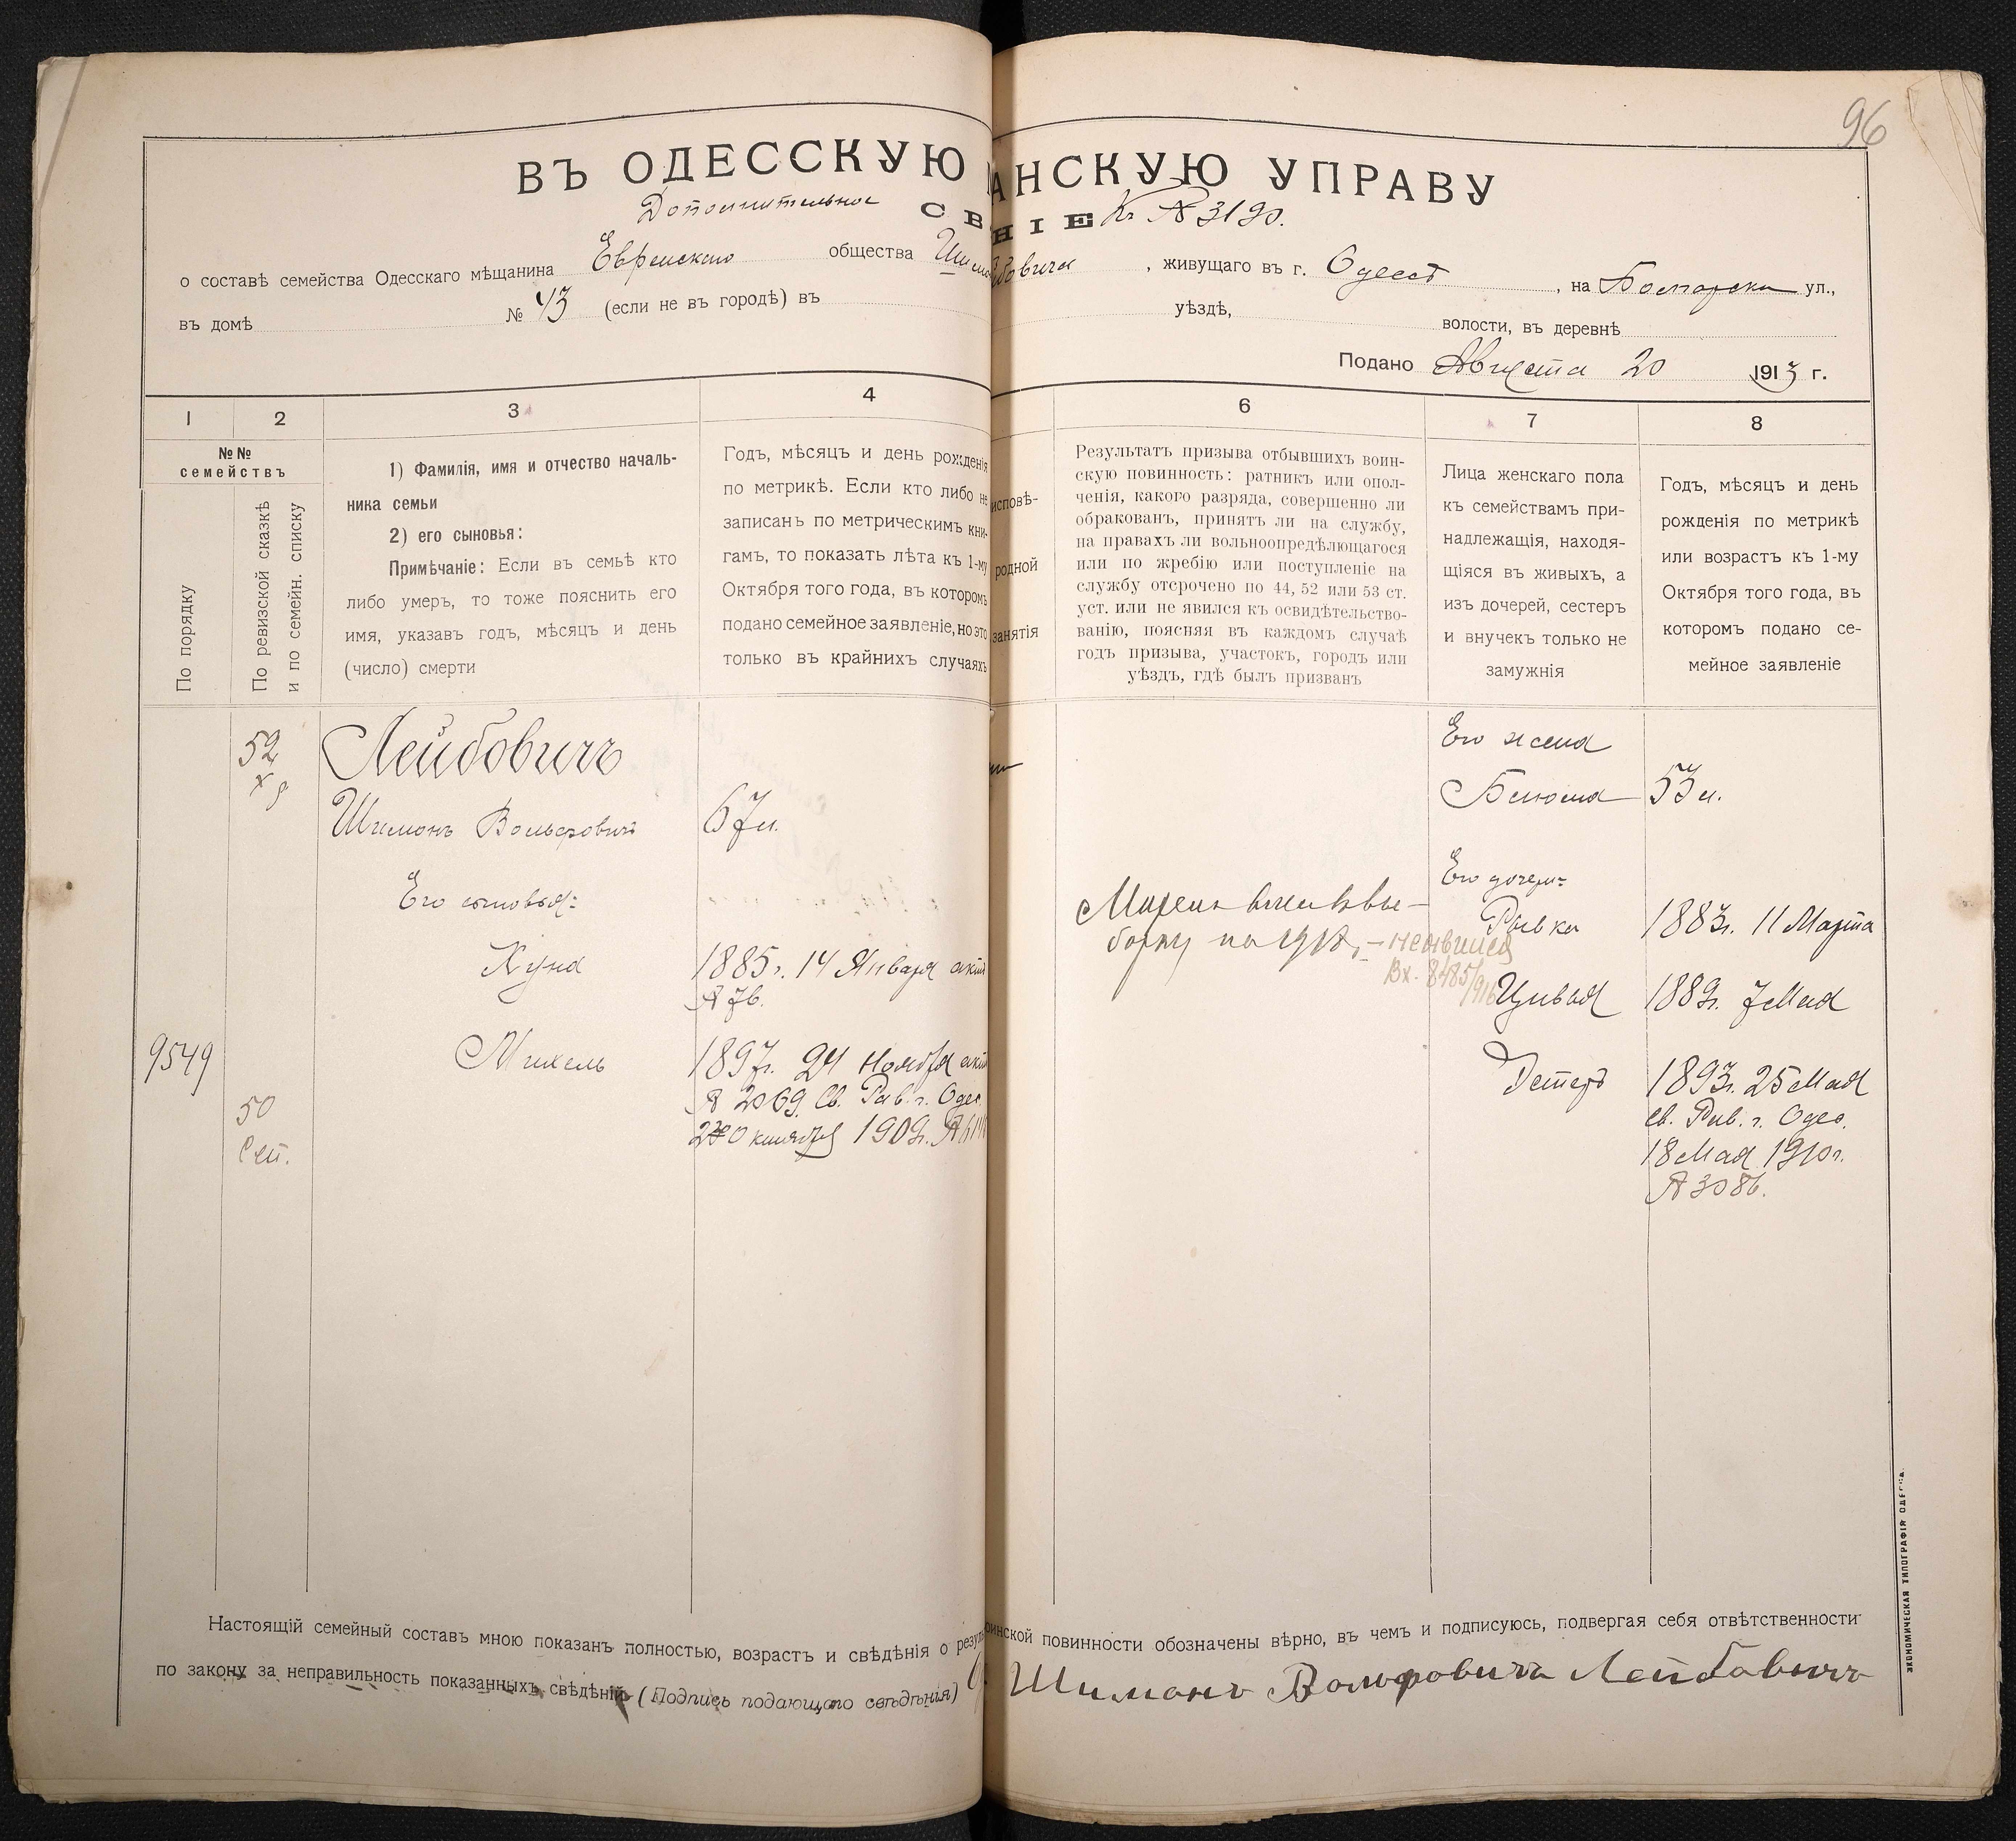 96
ВЪ ОДЕССКУЮ АНСКУЮ УПРАВУ
Дополнительное СВ НІЕ Къ № 3190.
о составѣ семейства Одесскаго мѣщанина Еврейскаго общества Шимо бовича, живущаго въ г. Одессѣ, на Болгарской ул.,
въ домѣ № 43 (если не въ городѣ) въ уѣздѣ, волости, въ деревнѣ
Подано Августа 20 1913 г.
1 2 3 4 6 7 8
№№
семействъ
По порядку
По ревизской сказкѣ
и по семейн. списку
1) Фамилія, имя и отчество началь-
ника семьи
2) его сыновья:
Примѣчаніе: Если въ семьѣ кто
либо умеръ, то тоже пояснить его
имя, указавъ годъ, мѣсяцъ и день
(число) смерти
Годъ, мѣсяцъ и день рожденія
по метрикѣ. Если кто либо не
записанъ по метрическимъ кни-
гамъ, то показать лѣта къ 1-му
Октября того года, въ которомъ
подано семейное заявленіе, но это
только въ крайнихъ случаяхъ
исповѣ-
родной
занятія
Результатъ призыва отбывшихъ воин-
скую повинность: ратникъ или опол-
ченія, какого разряда, совершенно ли
обракованъ, принятъ ли на службу,
на правахъ ли вольноопредѣляющагося
или по жребію или поступленіе на
службу отсрочено по 44, 52 или 53 ст.
уст. или не явился къ освидѣтельство-
ванію, поясняя въ каждомъ случаѣ
годъ призыва, участокъ, городъ или
уѣздъ, гдѣ былъ призванъ
Лица женскаго пола
къ семействамъ при-
надлежащія, находя-
щіяся въ живыхъ, а
изъ дочерей, сестеръ
и внучекъ только не
замужнія
Годъ, мѣсяцъ и день
рожденія по метрикѣ
или возрастъ къ 1-му
Октября того года, въ
которомъ подано се-
мейное заявленіе
52 Лейбовичъ
Его жена
Шимонъ Вольфовичъ 67 л.
53 л.
Его сыновья:
Его дочери:
Рывка 1883г. 11 Марта
на 1918г. – не явился
Вх. 8485/916
1885г. 14 Января акт
№ 76.
Цивья 1889г. 7 Мая
9549 Михель 1897г. 24 Ноября акт
№ 2069. Св. Рав. г. Одес.
Октября 1909г.
50
Сем.
Эстеръ 1893г. 25 Мая
св. Рав. г. Одес.
18 Мая 1910г.
№ 3086.
Настоящій семейный составъ мною показанъ полностью, возрастъ и свѣдѣнія о резул оинской повинности обозначены вѣрно, въ чемъ и подписуюсь, подвергая себя отвѣтственности
по закону за неправильность показанныхъ свѣдѣній (Подпись подающаго свѣдѣнія) Шимонъ Вольфовичъ Лейбовичъ
ЭКОНОМИЧЕСКАЯ ТИПОГРАФІЯ ОДЕССА.